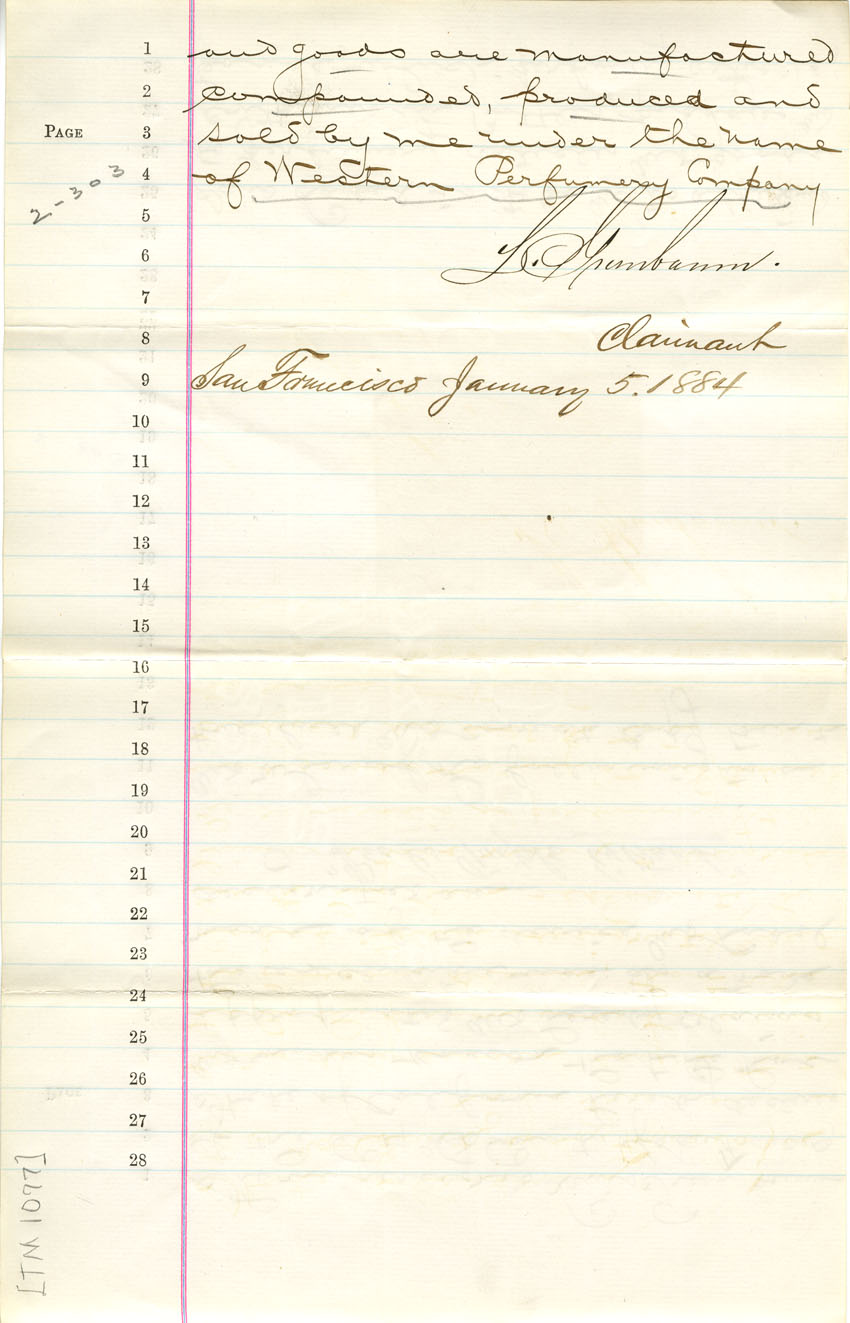 1 and goods are manufactured
2 compounded, produced and
PAGE 3 sold by me under the name
2-303 4 of Western Perfumery Company
5
6 L. Grumbaum.
7
8 Claimant
9 San Francisco January 5. 1884
10
11
12
13
14
15
16
17
18
19
20
21
22
23
24
25
26
27
28
[TM 1097]